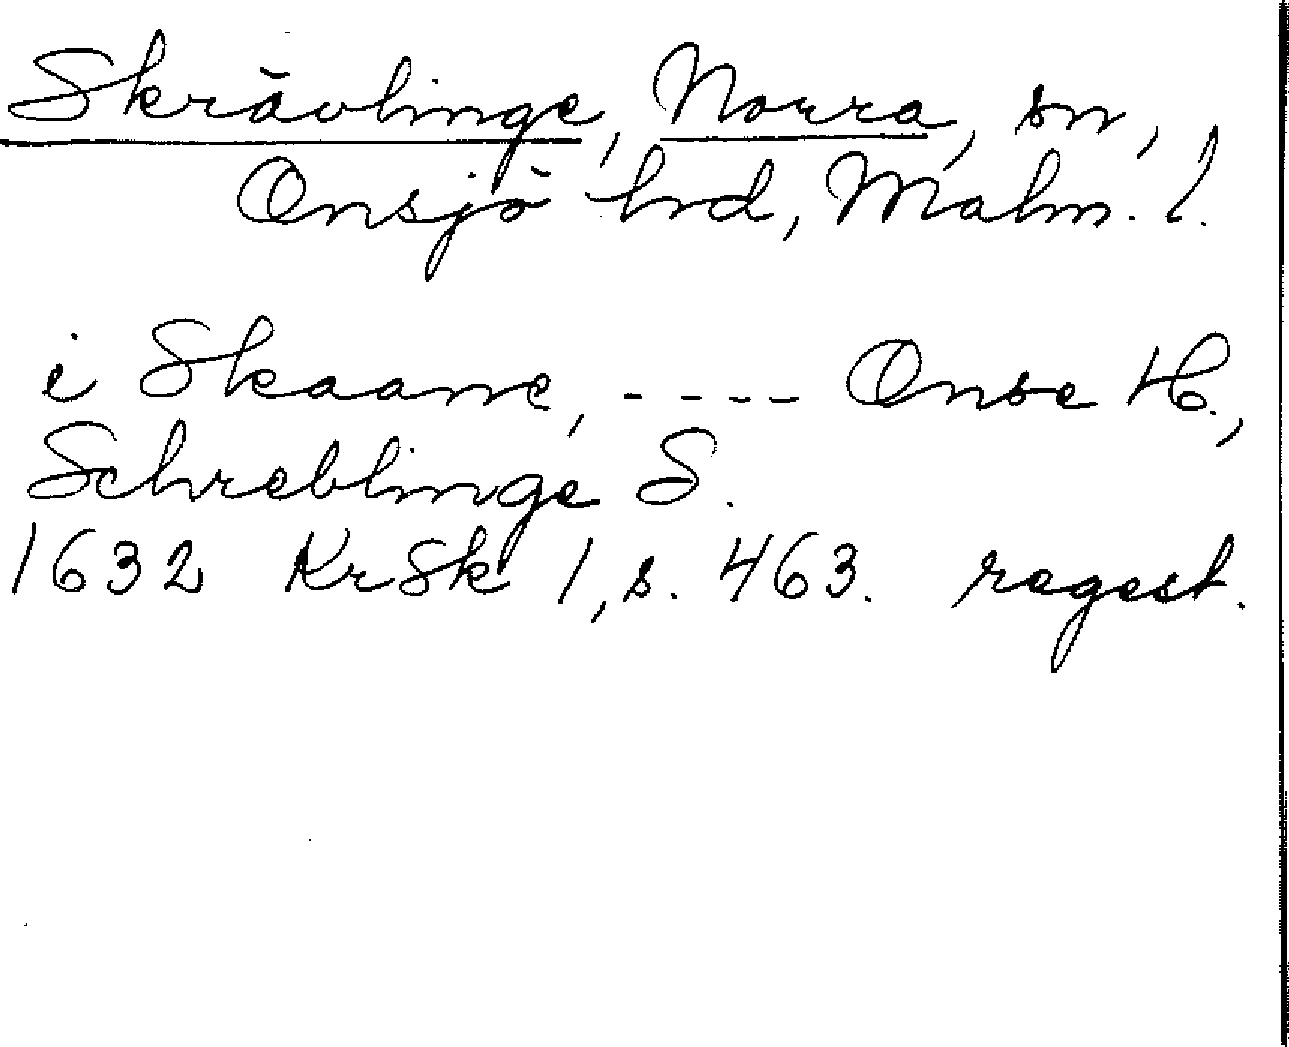 Skrävlinge, Norra, sn,
Onsjö hd, Malm. l.
i Skaane, ---- Onse H.,
Schreblinge S.
1632 KrSk 1, s. 463. regest.